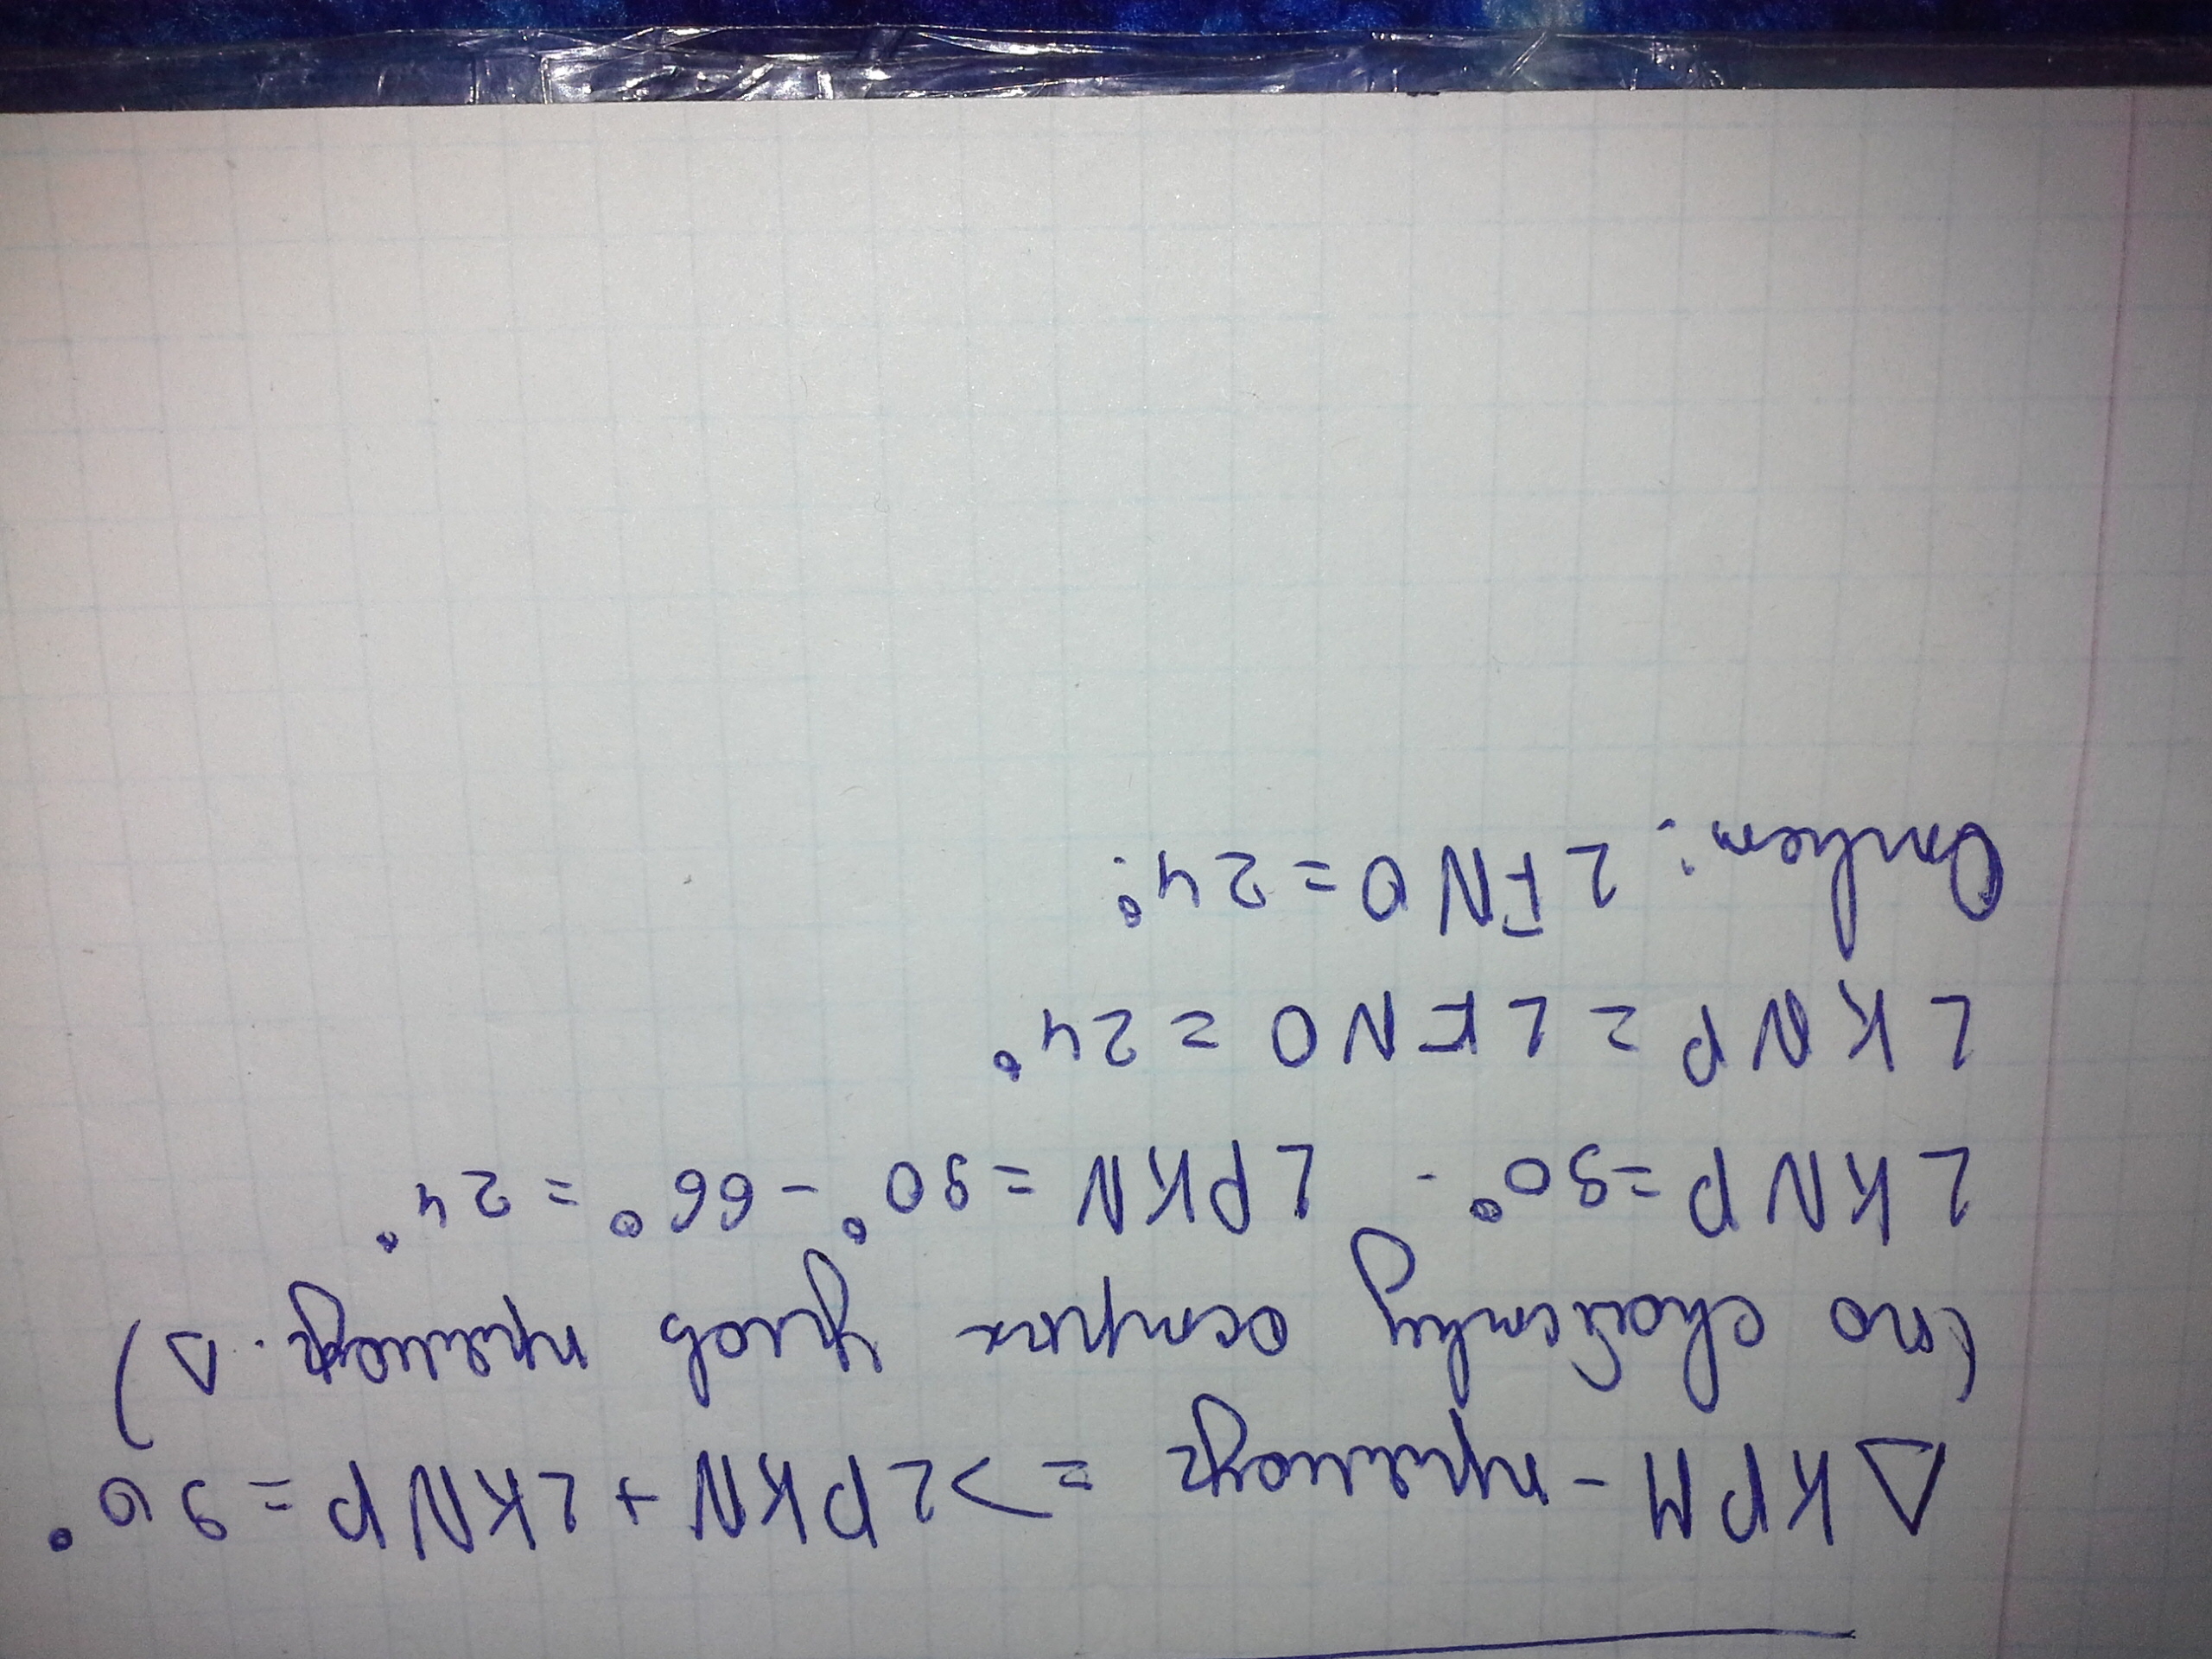 △KPM - прямоуг. => ∠PKN + ∠KNP = 90°
(по свойству острых углов прямоуг. △)
∠KNP = 90° - ∠PKN = 90° - 66° = 24°
∠KNP = ∠ENO = 24°
Ответ: ∠ENO = 24°.